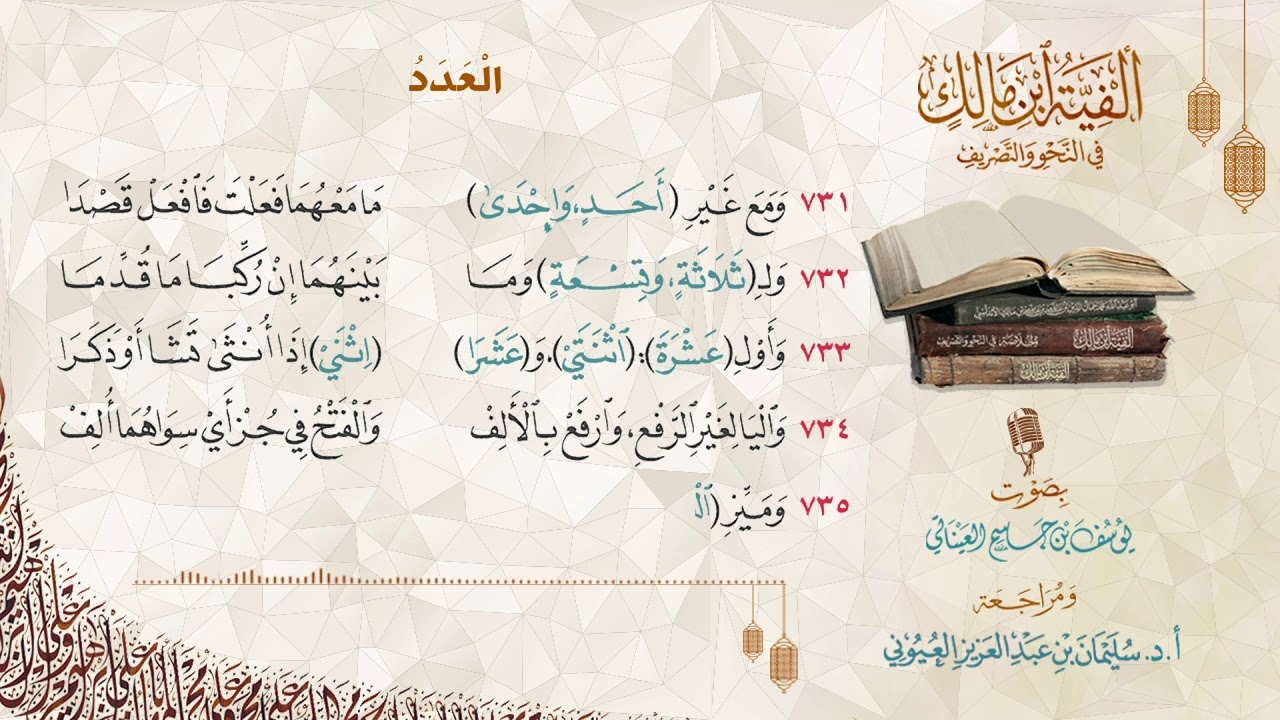 ألفية ابن مالك
في النحو والتصريف
الْعَدَدُ
٧٣١ وَمَعَ غَيْرِ (أَحَدٍ، وَإِحْدَىٰ) مَا مَعْهُمَا فَعَلْتَ فَٱفْعَلْ قَصْدَا
٧٣٢ وَلِـ(ثَلَاثَةٍ، وَتِسْعَةٍ) وَمَا بَيْنَهُمَا إِنْ رُكِّبَا مَا قُدِّمَا
٧٣٣ وَأَوْلِ (عَشْرَةَ): (ٱثْنَتَيْ)، وَ(عَشَرَا) (اِثْنَيْ) إِذَا أُنْثَىٰ تَشَا أَوْ ذَكَرَا
٧٣٤ وَٱلْيَا لِغَيْرِ ٱلرَّفْعِ، وَٱرْفَعْ بِٱلْأَلِفْ وَٱلْفَتْحُ فِي جُزْأَيْ سِوَاهُمَا أُلِفْ
٧٣٥ وَمَيِّزِ (ٱلْ
ألفية ابن مالك
ألفية ابن مالك
بِصَوْت
يوسف بن جاسم العيناتي
وَمُرَاجَعَة
أ.د. سُلَيْمَانَ بْنِ عَبْدِ الْعَزِيزِ الْعُيُونِي